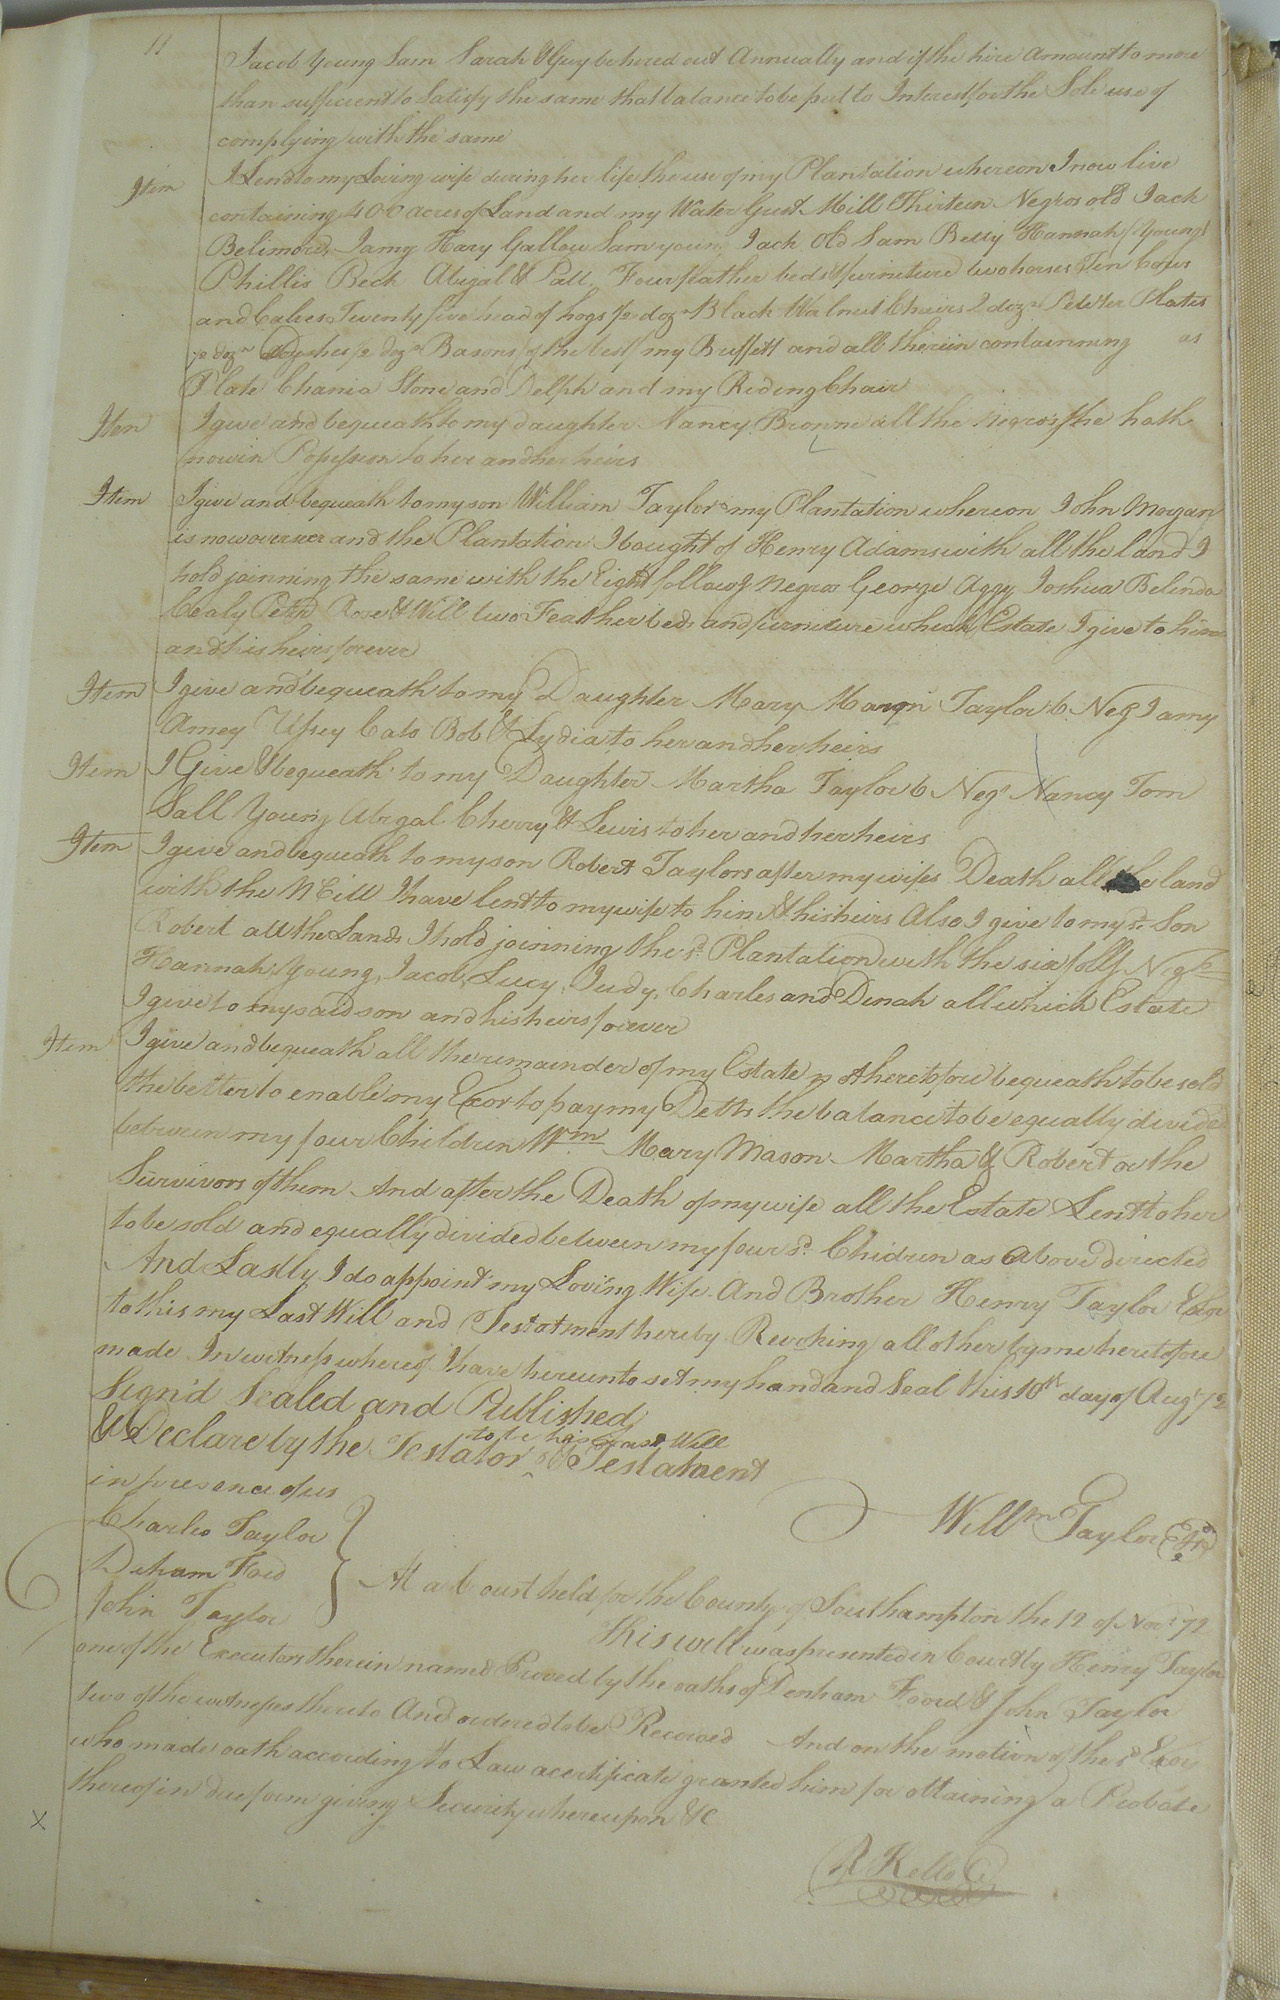 11
Jacob Young Sam Sarah & Guy be hored out Annually and if the hire Amount to more
than sufficient to Satisfy the same that balance to be put to Interest for the Sole use of
complying with the same
Item I Lend to my Loving wife during her life the use of my Plantation whereon I now live
containing 400 acres of Land and my Water Grist Mill Thirteen Negros old Jack
Belimord Jamy Hary Gallou Sam young Jack Old Sam Betty Hannah (Young)
Phillis Beck Abigal & Patt Four feather beds & furniture two horses Ten Cows
and Calves Twenty five head of hogs ½ doz Black Walnut Chairs 2 doz Pewter Plates
½ doz Dyshes ½ doz Basons of the best my Buffett and all therein containing as
Plate Chania Stone and Delph and my Riding Chair
Item I give and bequeath to my daughter Nancy Browne all the Negros she hath
now in Possession to her and her heirs
Item I give and bequeath to my son William Taylor my Plantation whereon John Morgan
is now overseer and the Plantation I bought of Henry Adams with all the land I
hold joinning the same with the Eight follow.g Negros George Aggy Joshua Belinda
Cealy Peter Rose & Will two Feather beds and furniture which Estate I give to him
and his heirs forever
Item I give and bequeath to my Daughter Mary Mason Taylor 6 Neg.s Jamy
Amey Upsey Cato Bob & Lydia to her and her heirs
Item I Give & bequeath to my Daughter Martha Taylor 6 Neg.s Nancy Tom
Sall Young Abigal Cherry & Lewis to her and her heirs
Item I give and bequeath to my son Robert Taylor after my wifes Death all the land
with the Mill I have lent to my wife to him & his heirs Also I give to my s.d Son
Robert all the Lands I hold joinning the s.d Plantation with the six foll.g Neg.s
Hannah Young, Jacob, Lucy, Judy, Charles and Dinah all which Estate
I give to my said son and his heirs forever
Item I give and bequeath all the remainder of my Estate not heretofore bequeath to be sold
the better to enable my Exor to pay my Debts the balance to be equally divided
between my four Children Wm Mary Mason Martha & Robert or the
Survivors of them And after the Death of my wife all the Estate Lent to her
to be sold and equally divided between my four s.d Chidren as above directed
And Lastly I do appoint my Loving Wife And Brother Henry Taylor Exor
to this my Last Will and Testatment hereby Revoking all other by me heretofore
made In witness whereof I have hereunto set my hand and Seal this 10th day of Augt 72
Sign'd Sealed and Published
& Declare by the Testator to be his Last Will & Testatment
in presence of us
Willm Taylor
Charles Taylor
Deham Foed
John Taylor
At a Court held for the County of Southampton the 12 of Nov.r 72
This will was presented in Court by Henry Taylor
one of the Executors therein named Proved by the oaths of Denham Foord & John Taylor
two of the witnesses thereto And ordered to be Recored And on the motion of the s.d Exor
who made oath according to Law a certificate granted him for obtaining a Probate
thereof in due form giving Security whereupon &c
X
R Kello C